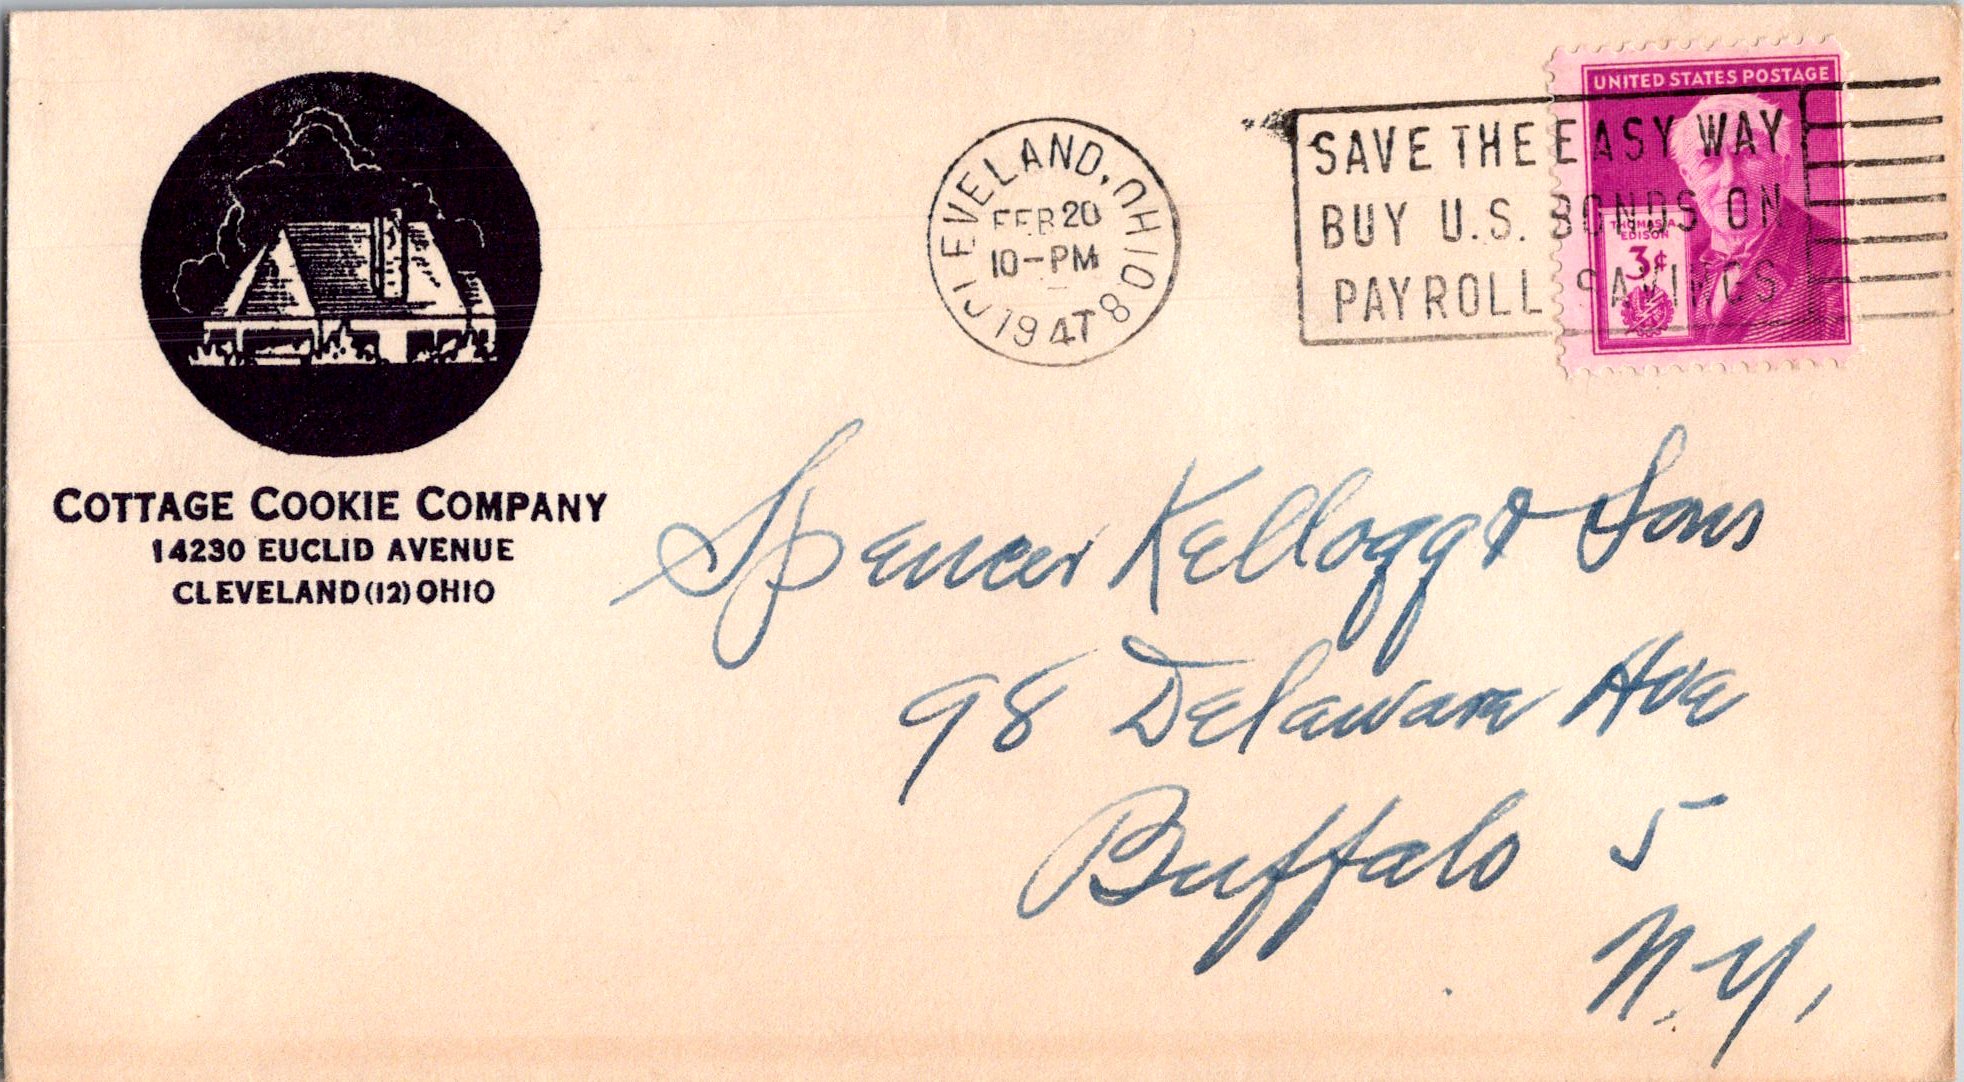 COTTAGE COOKIE COMPANY
14230 EUCLID AVENUE
CLEVELAND (12) OHIO
CLEVELAND, OHIO 8
FEB 20
10-PM
1947
SAVE THE EASY WAY
BUY U.S. BONDS ON
PAYROLL SAVINGS
UNITED STATES POSTAGE
THOMAS A.
EDISON
3¢
Spencer Kellogg & Sons
98 Delaware Ave
Buffalo 5
N.Y.